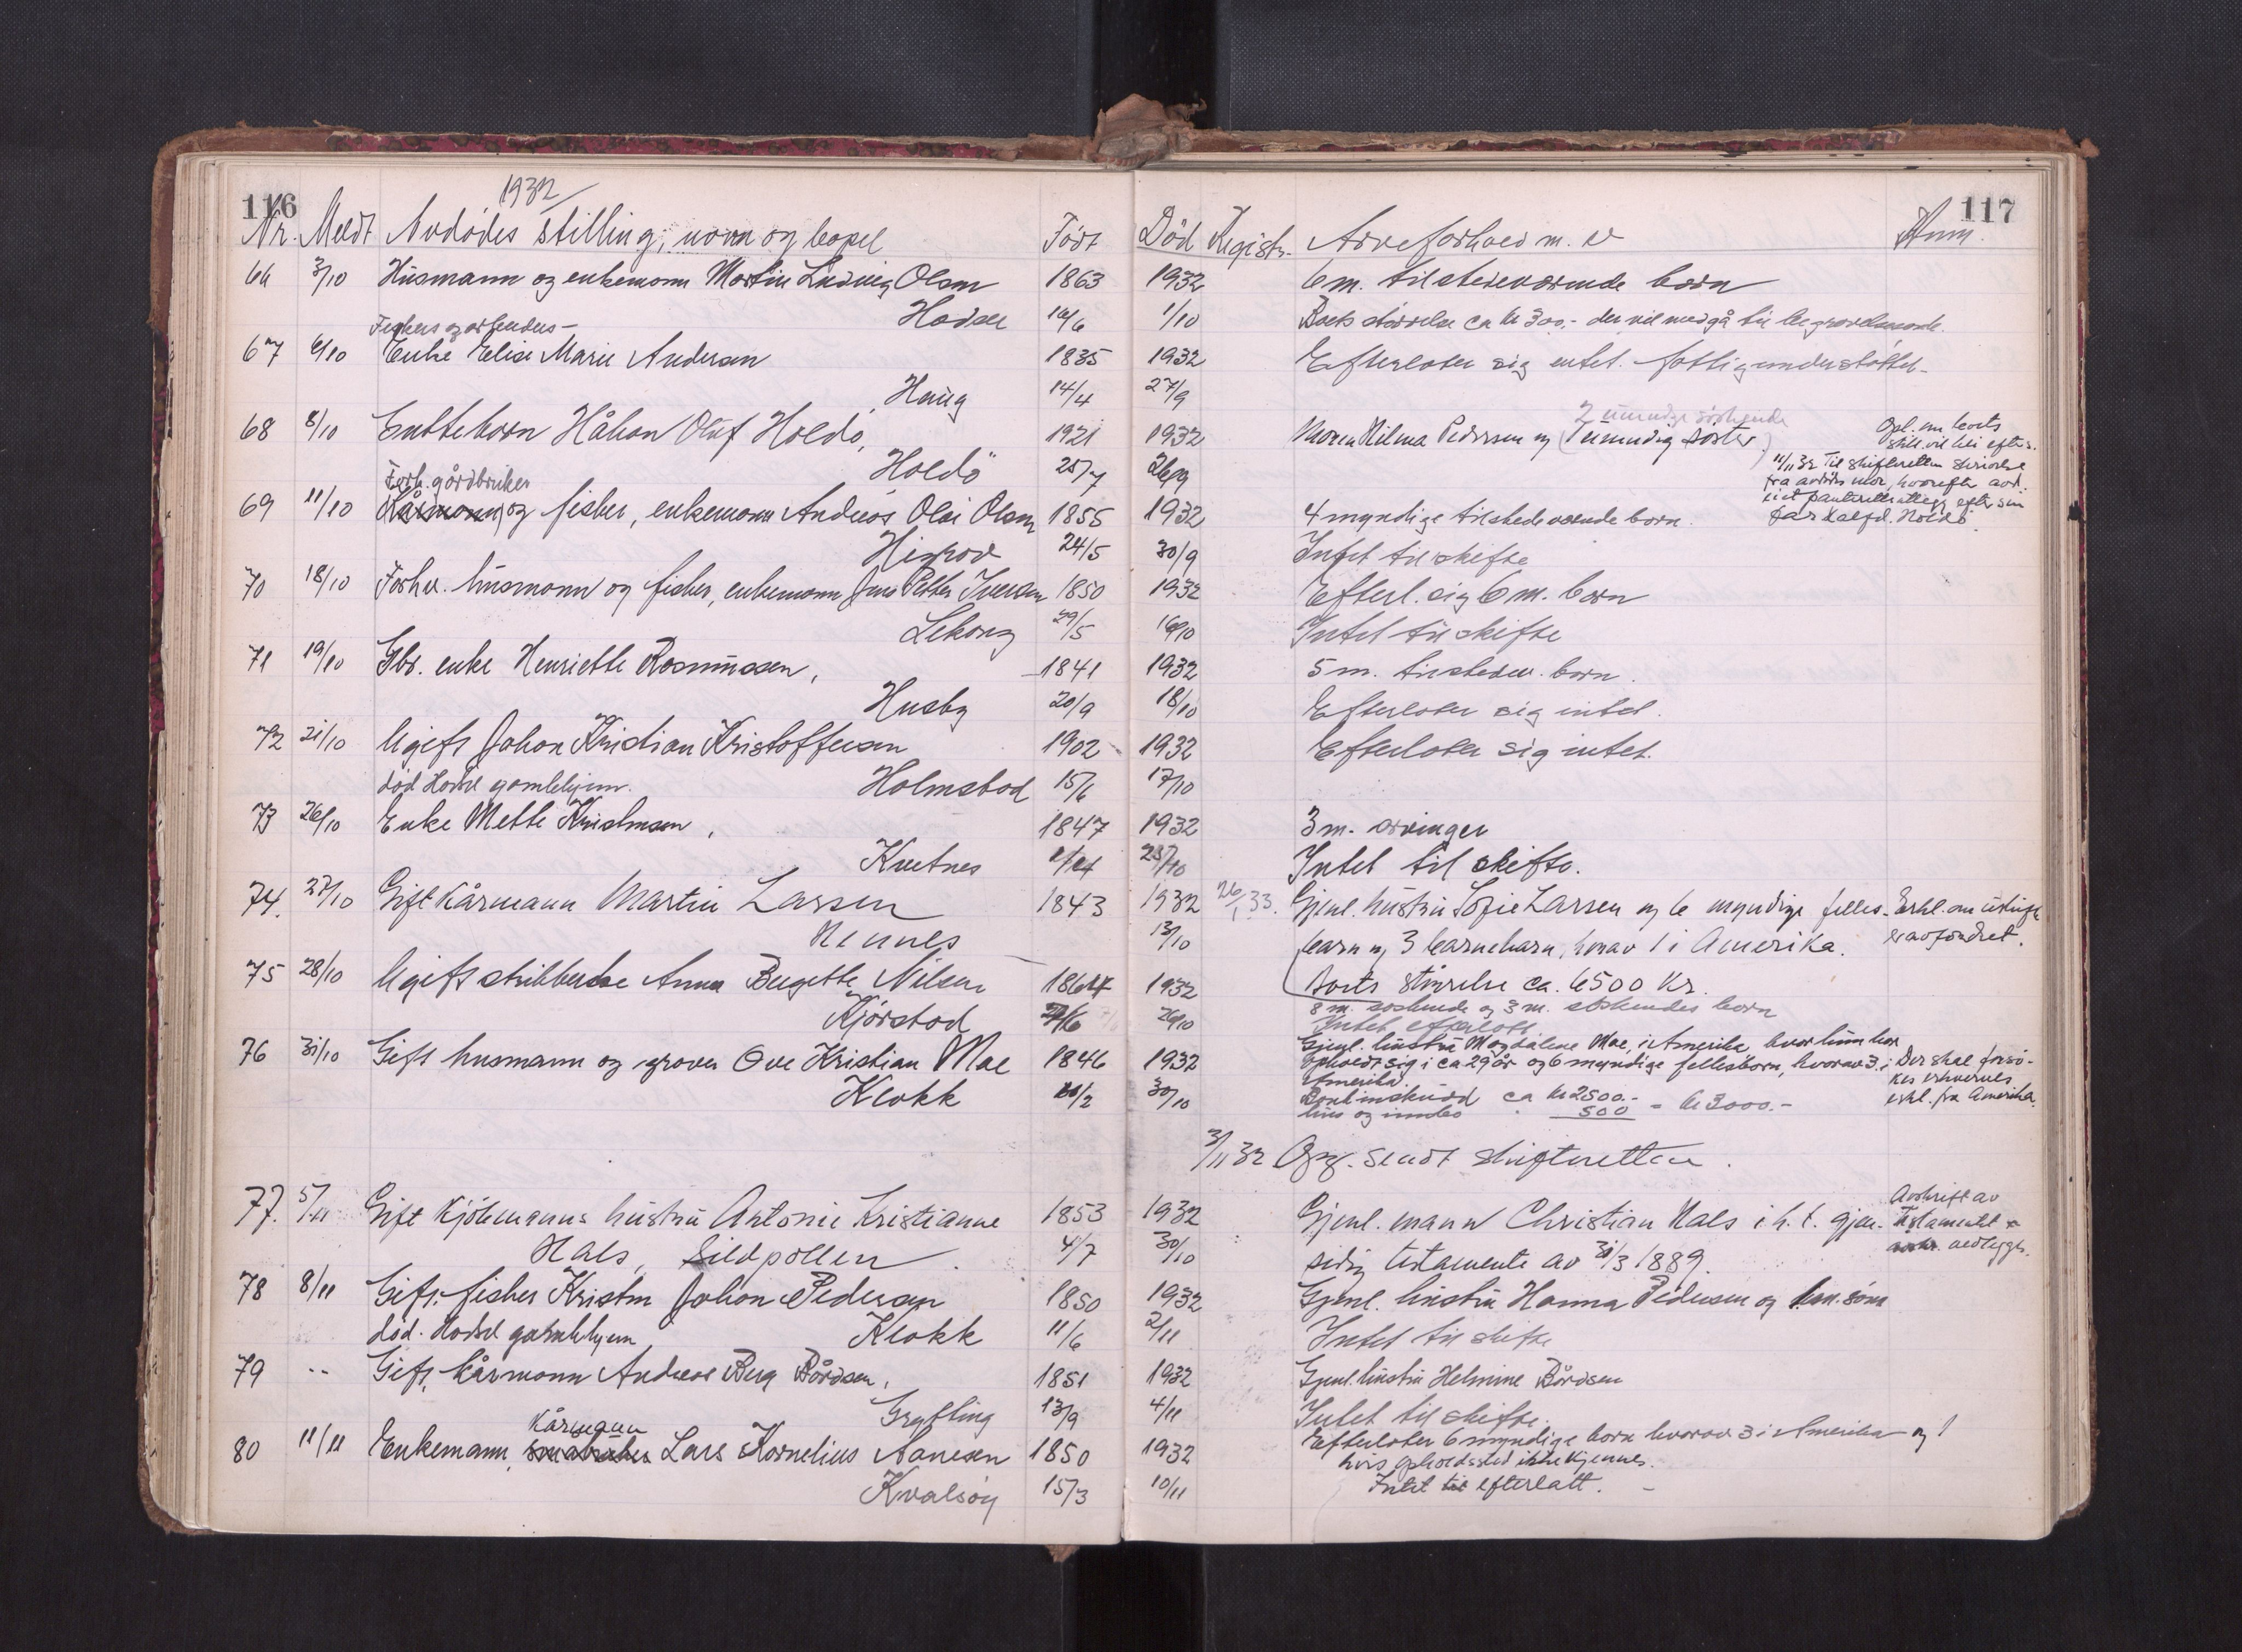 116
1932
Nr. Meldt Avdødes stilling, navn og bopel Født
66 3/10 Husmann og enkemann Martin Ludvig Olsen 1863
Hadsel 16/6
Fiskers og arbeiders-
67 6/10 Enke Elise Marie Andersen 1835
Haug 14/4
68 8/10 Gutteborn Håkon Oluf Holdö, 1921
Holdö 25/7
Forh. gårdbruker
69 11/10 Kårmann og fisker, enkemann Andreas Olai Olsen 1855
24/5
70 18/10 Forhv. husmann og fisker, enkemann Jens Petter Iversen 1850
Lekang 29/5
71 19/10 Gbr. enke Henriette Rasmussen, 1841
Husby 20/9
72 21/10 Ugift Johan Kristian Kristoffersen 1902
död Hadsel gamlehjem. Holmstad 15/6
73 26/10 Enke Mette Kristensen, 1847
Kvitnes
74. 27/10 Gift kårmann Martin Larsen 1843
Rennes
75 28/10 Ugift Anna Birgitte Nilsen 1864
Kjörstad
76 31/10 Gift husmann og graver Ove Kristian Moe 1846
Klokk
77. 5/11 Gift Kjöbmanns hustru Antonie Kristianne 1853
Hals, Sildpollen. 4/7
78 8/11 Gift. fisker Kristen Johan Pedersen 1850
död. Hadsel gamlehjem Klokk 11/6
79 -- Gift, kårmann Andreas Berg Bårdsen, 1851
Grytting 13/9
Kårmann
80 11/11 Enkemann, småbruker Lars Kornelius Aanesen 1850
Kvalsöy 15/3
117
Död Registr. Arveforhold m. v Anm.
1932 6 m. tilstedeværende born
1/10 Boets störrelse ca kr 300.- der vil medgå til
1932 Efterlater sig intet. fattigunderstöttet-
27/9
2 umyndige söskende
1932 Moren Hilma Pedersen og 1 umyndig söster.
Opl. om boets
still. vil bli efters.
26/9
11/11 32 Til skifteretten skrivelse
fra avdödes mor, hvorefter avd.
1932 4 myndige tilstedeværende born.
far Holdö.
30/9 Intet til skifte
1932 Efterl. sig 6 m. born
16/10 Intet til skifte
1932 5 m. tilstedev. born.
18/10 Efterlater sig intet.
1932 Efterlater sig intet.
17/10
1932 3 m. arvinger
25/10 Intet til skifte.
1932 26/1 33. Gjenl. hustru Sofie Larsen og 6 myndige felles-
Erkl. om uskifte
13/10 barn og 3 barnebarn, hvorav 1 i Amerika.
er avfordret.
1932 Boets störrelse ca. 6500 Kr.
8 m. söskende og 3 m. söskendes born
26/10 Intet efterlatt
Gjenl. hustru Magdalene Moe, i Amerika hvor hun har
1932 opholdt sig i ca 29 år og 6 myndige fellesborn, hvorav 3 i
Der skal forsö-
Amerika.
kes erhverves
30/10 Bankinnskudd ca kr 2500.-
erkl. fra Amerika
hus og innbo 500 = kr 3000.-
3/11 32 Opg. sendt skifteretten.
1932 Gjenl. mann Christian Hals i. h. t. gjen-
Avskrift av
testamentet
30/10 sidig testamente av 31/3 1889.
vedlegges.
1932 Gjenl. hustru Hanna Pedersen og
2/11 Intet til skifte
1932 Gjenl. hustru Helmine Bårdsen
4/11 Intet til skifte.
1932 Efterlater 6 myndige born hvorav 3 i Amerika og 1
hvis opholdssted ikke kjennes.
10/11 Intet til efterlatt. -